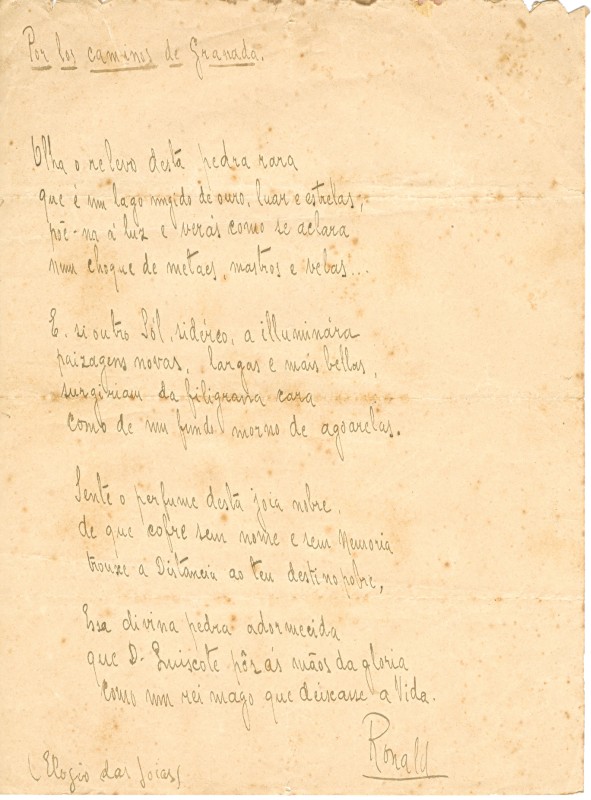 Por los caminos de Granada.
Olha o relevo desta pedra rara
que é um lago ungido de ouro, luar e estrelas,
põe-na á luz e verás como se aclara
num choque de metaes, mastros e velas...
E. si outro Sól, sidéreo, a illuminára
paizagens novas, largas e mais bellas,
surgiriam da filigrana cara
como de um fundo morno de agoarelas.
Sente o perfume desta joia nobre.
de que cofre sem nome e sem Memoria
trouxe a Distancia ao teu destino pobre,
Essa divina pedra adormecida
que D. Quiscote pôz ás mãos da gloria
como um rei mago que deixasse a Vida.
Ronald
(Elogio das Joias)